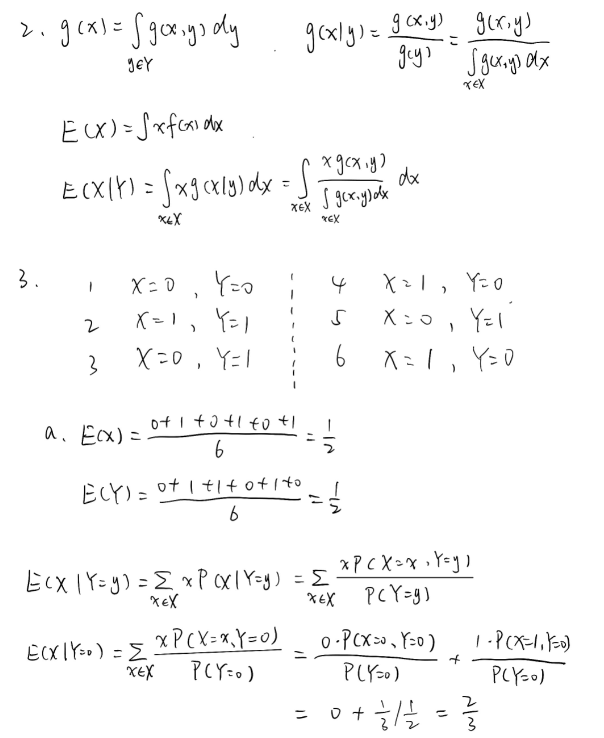 2. g(x) = ∫_{y∈Y} g(x,y) dy    g(x|y) = g(x,y) / g(y) = g(x,y) / ∫_{x∈X} g(x,y) dx
E(X) = ∫ x f(x) dx
E(X|Y) = ∫_{x∈X} x g(x|y) dx = ∫_{x∈X} x g(x,y) / ∫_{x∈X} g(x,y) dx dx
3. 1 X=0, Y=0    4 X=1, Y=0
2 X=1, Y=1    5 X=0, Y=1
3 X=0, Y=1    6 X=1, Y=0
a. E(x) = (0+1+0+1+0+1) / 6 = 1/2
E(Y) = (0+1+1+0+1+0) / 6 = 1/2
E(X|Y=y) = Σ_{x∈X} x P(X|Y=y) = Σ_{x∈X} x P(X=x, Y=y) / P(Y=y)
E(X|Y=0) = Σ_{x∈X} x P(X=x, Y=0) / P(Y=0) = 0·P(X=0, Y=0) / P(Y=0) + 1·P(X=1, Y=0) / P(Y=0)
= 0 + 1/3 / 1/2 = 2/3